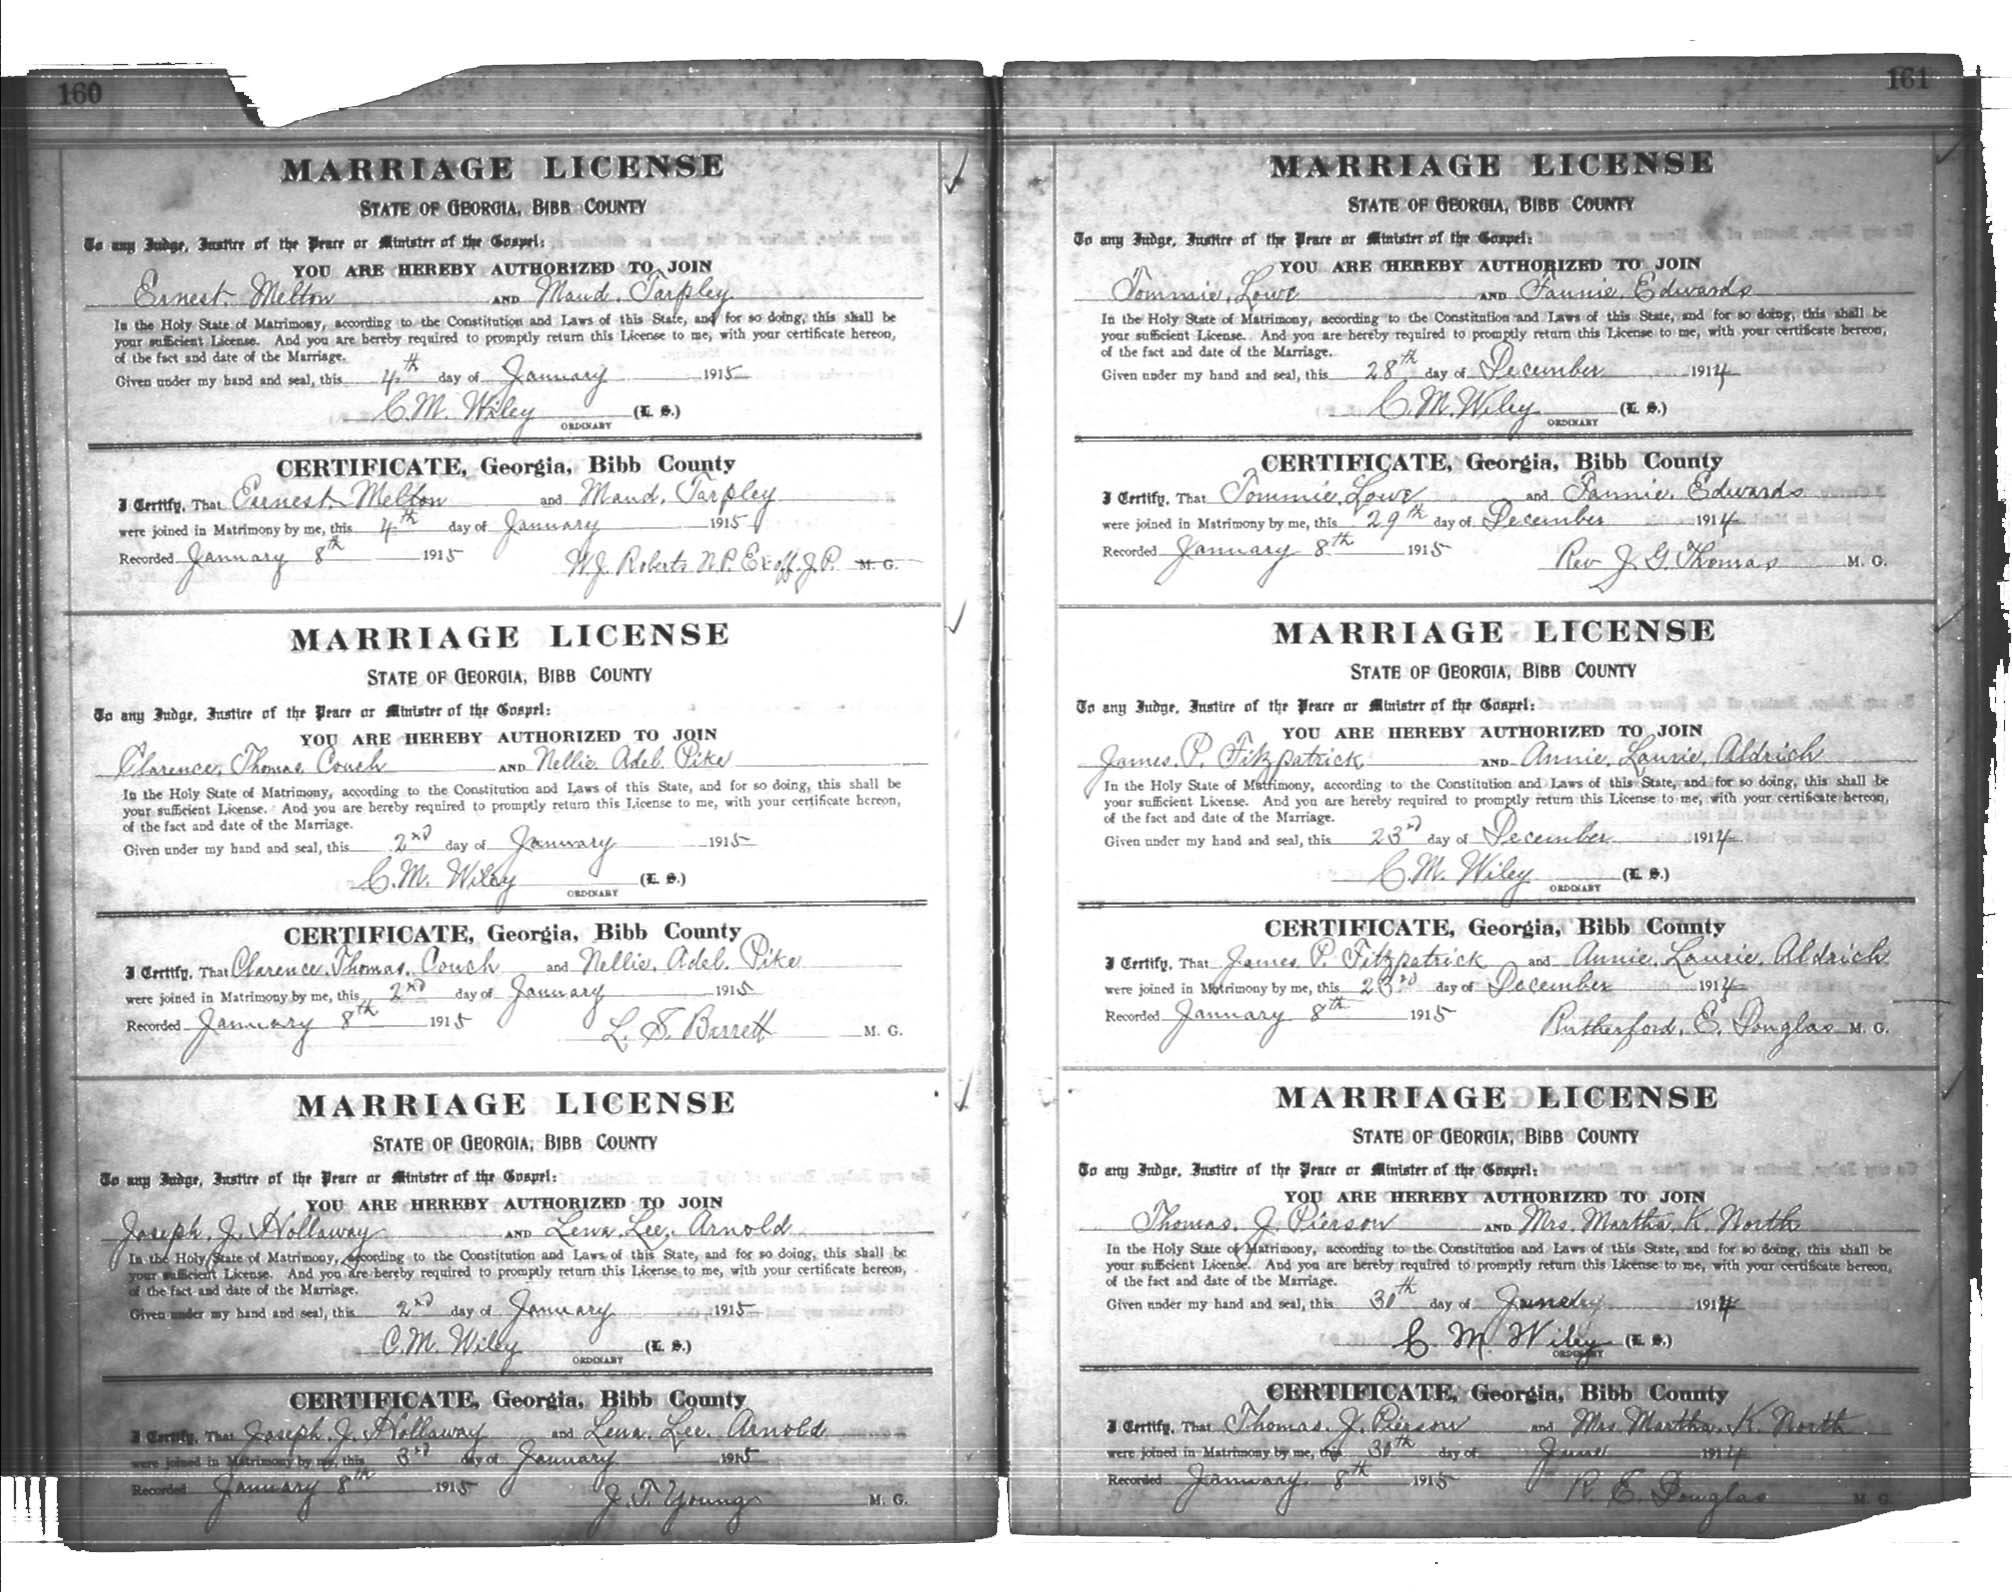 160
MARRIAGE LICENSE
STATE OF GEORGIA, BIBB COUNTY
To any Judge, Justice of the Peace or Minister of the Gospel:
YOU ARE HEREBY AUTHORIZED TO JOIN
Ernest Melton AND Maud Tarpley
In the Holy State of Matrimony, according to the Constitution and Laws of this State, and for so doing, this shall be
your sufficient License. And you are hereby required to promptly return this License to me, with your certificate hereon,
of the fact and date of the Marriage.
Given under my hand and seal, this 4th day of January 1915
C. M. Wiley (L. S.)
ORDINARY
CERTIFICATE, Georgia, Bibb County
I Certify, That Earnest Melton and Maud Tarpley
were joined in Matrimony by me, this 4th day of January 1915
Recorded January 8th 1915 W. J. Roberts N.P. Ex off. J.P. M. G.
MARRIAGE LICENSE
STATE OF GEORGIA, BIBB COUNTY
To any Judge, Justice of the Peace or Minister of the Gospel:
YOU ARE HEREBY AUTHORIZED TO JOIN
Clarence Thomas Couch AND Nellie Adel Pike
In the Holy State of Matrimony, according to the Constitution and Laws of this State, and for so doing, this shall be
your sufficient License. And you are hereby required to promptly return this License to me, with your certificate hereon,
of the fact and date of the Marriage.
Given under my hand and seal, this 2nd day of January 1915
C. M. Wiley (L. S.)
ORDINARY
CERTIFICATE, Georgia, Bibb County
I Certify, That Clarence Thomas Couch and Nellie Adel Pike
were joined in Matrimony by me, this 2nd day of January 1915
Recorded January 8th 1915 L. S. Barrett M. G.
MARRIAGE LICENSE
STATE OF GEORGIA, BIBB COUNTY
To any Judge, Justice of the Peace or Minister of the Gospel:
YOU ARE HEREBY AUTHORIZED TO JOIN
Joseph J. Hollaway AND Lena Lee Arnold
In the Holy State of Matrimony, according to the Constitution and Laws of this State, and for so doing, this shall be
your sufficient License. And you are hereby required to promptly return this License to me, with your certificate hereon,
of the fact and date of the Marriage.
Given under my hand and seal, this 2nd day of January 1915
C. M. Wiley (L. S.)
ORDINARY
CERTIFICATE, Georgia, Bibb County
I Certify, That Joseph J. Hollaway and Lena Lee Arnold
were joined in Matrimony by me, this 3rd day of January 1915
Recorded January 8th 1915 J. T. Young M. G.
161
MARRIAGE LICENSE
STATE OF GEORGIA, BIBB COUNTY
To any Judge, Justice of the Peace or Minister of the Gospel:
YOU ARE HEREBY AUTHORIZED TO JOIN
Tommie Lowe AND Fannie Edwards
In the Holy State of Matrimony, according to the Constitution and Laws of this State, and for so doing, this shall be
your sufficient License. And you are hereby required to promptly return this License to me, with your certificate hereon,
of the fact and date of the Marriage.
Given under my hand and seal, this 28th day of December 1914
C. M. Wiley (L. S.)
ORDINARY
CERTIFICATE, Georgia, Bibb County
I Certify, That Tommie Lowe and Fannie Edwards
were joined in Matrimony by me, this 29th day of December 1914
Recorded January 8th 1915 Rev J. G. Thomas M. G.
MARRIAGE LICENSE
STATE OF GEORGIA, BIBB COUNTY
To any Judge, Justice of the Peace or Minister of the Gospel:
YOU ARE HEREBY AUTHORIZED TO JOIN
James P. Fitzpatrick AND Annie Laurie Aldrich
In the Holy State of Matrimony, according to the Constitution and Laws of this State, and for so doing, this shall be
your sufficient License. And you are hereby required to promptly return this License to me, with your certificate hereon,
of the fact and date of the Marriage.
Given under my hand and seal, this 23rd day of December 1914
C. M. Wiley (L. S.)
ORDINARY
CERTIFICATE, Georgia, Bibb County
I Certify, That James P. Fitzpatrick and Annie Laurie Aldrich
were joined in Matrimony by me, this 23rd day of December 1914
Recorded January 8th 1915 Rutherford E. Douglas M. G.
MARRIAGE LICENSE
STATE OF GEORGIA, BIBB COUNTY
To any Judge, Justice of the Peace or Minister of the Gospel:
YOU ARE HEREBY AUTHORIZED TO JOIN
Thomas J. Pierson AND Mrs. Martha K. North
In the Holy State of Matrimony, according to the Constitution and Laws of this State, and for so doing, this shall be
your sufficient License. And you are hereby required to promptly return this License to me, with your certificate hereon,
of the fact and date of the Marriage.
Given under my hand and seal, this 30th day of 1914
C M Wiley (L. S.)
ORDINARY
CERTIFICATE, Georgia, Bibb County
I Certify, That Thomas J. Pierson and Mrs Martha K. North
were joined in Matrimony by me, this 30th day of June 1914
Recorded January 8th 1915 R. E. Douglas M. G.